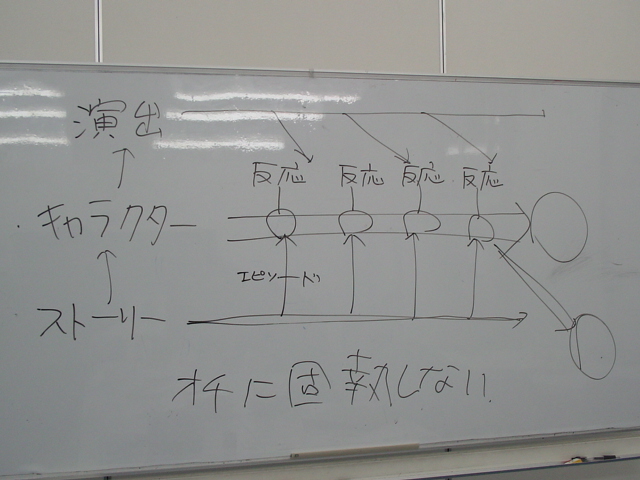 演出
反応 反応 反応 反応
キャラクター
エピソード
ストーリー
オチに固執しない